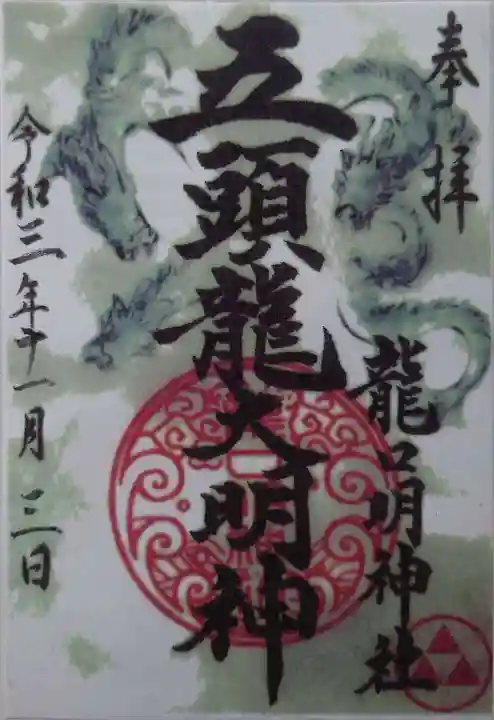 奉拝
龍口明神社
五頭龍大明神
令和三年十一月三日